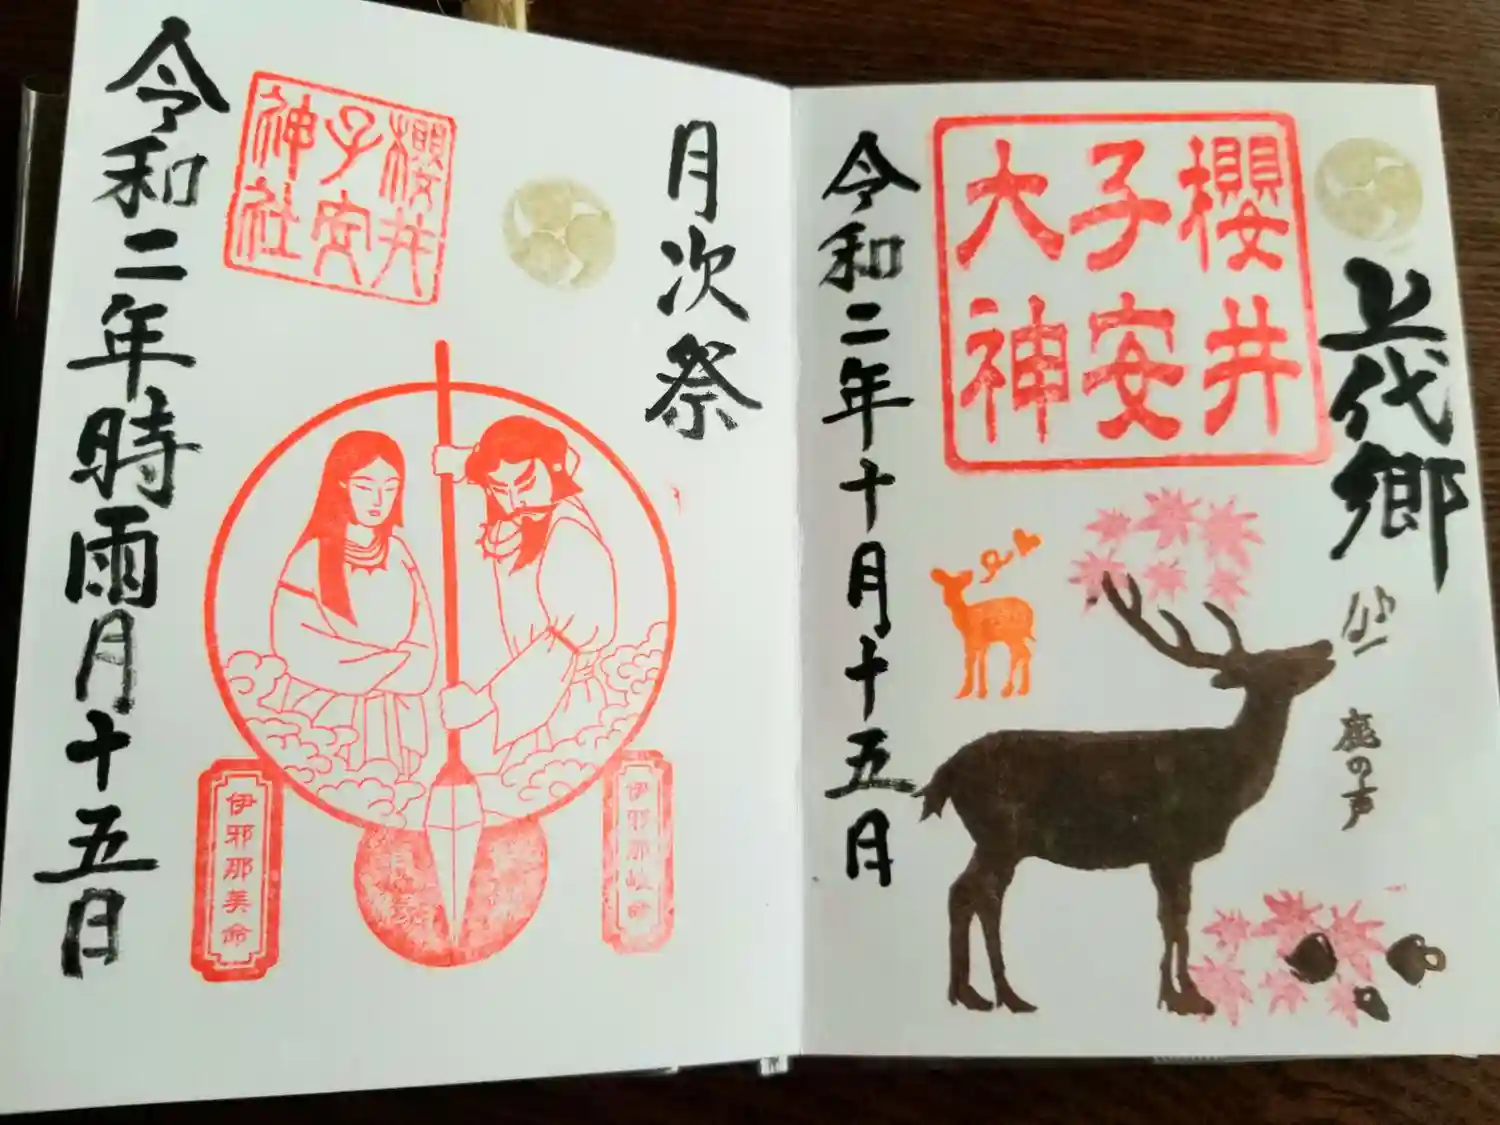 上代郷
櫻井
子安
大神
鹿の声
令和二年十月十五月
月次祭
櫻井
子安
神社
伊邪那岐命
伊邪那美命
令和二年時雨月十五日